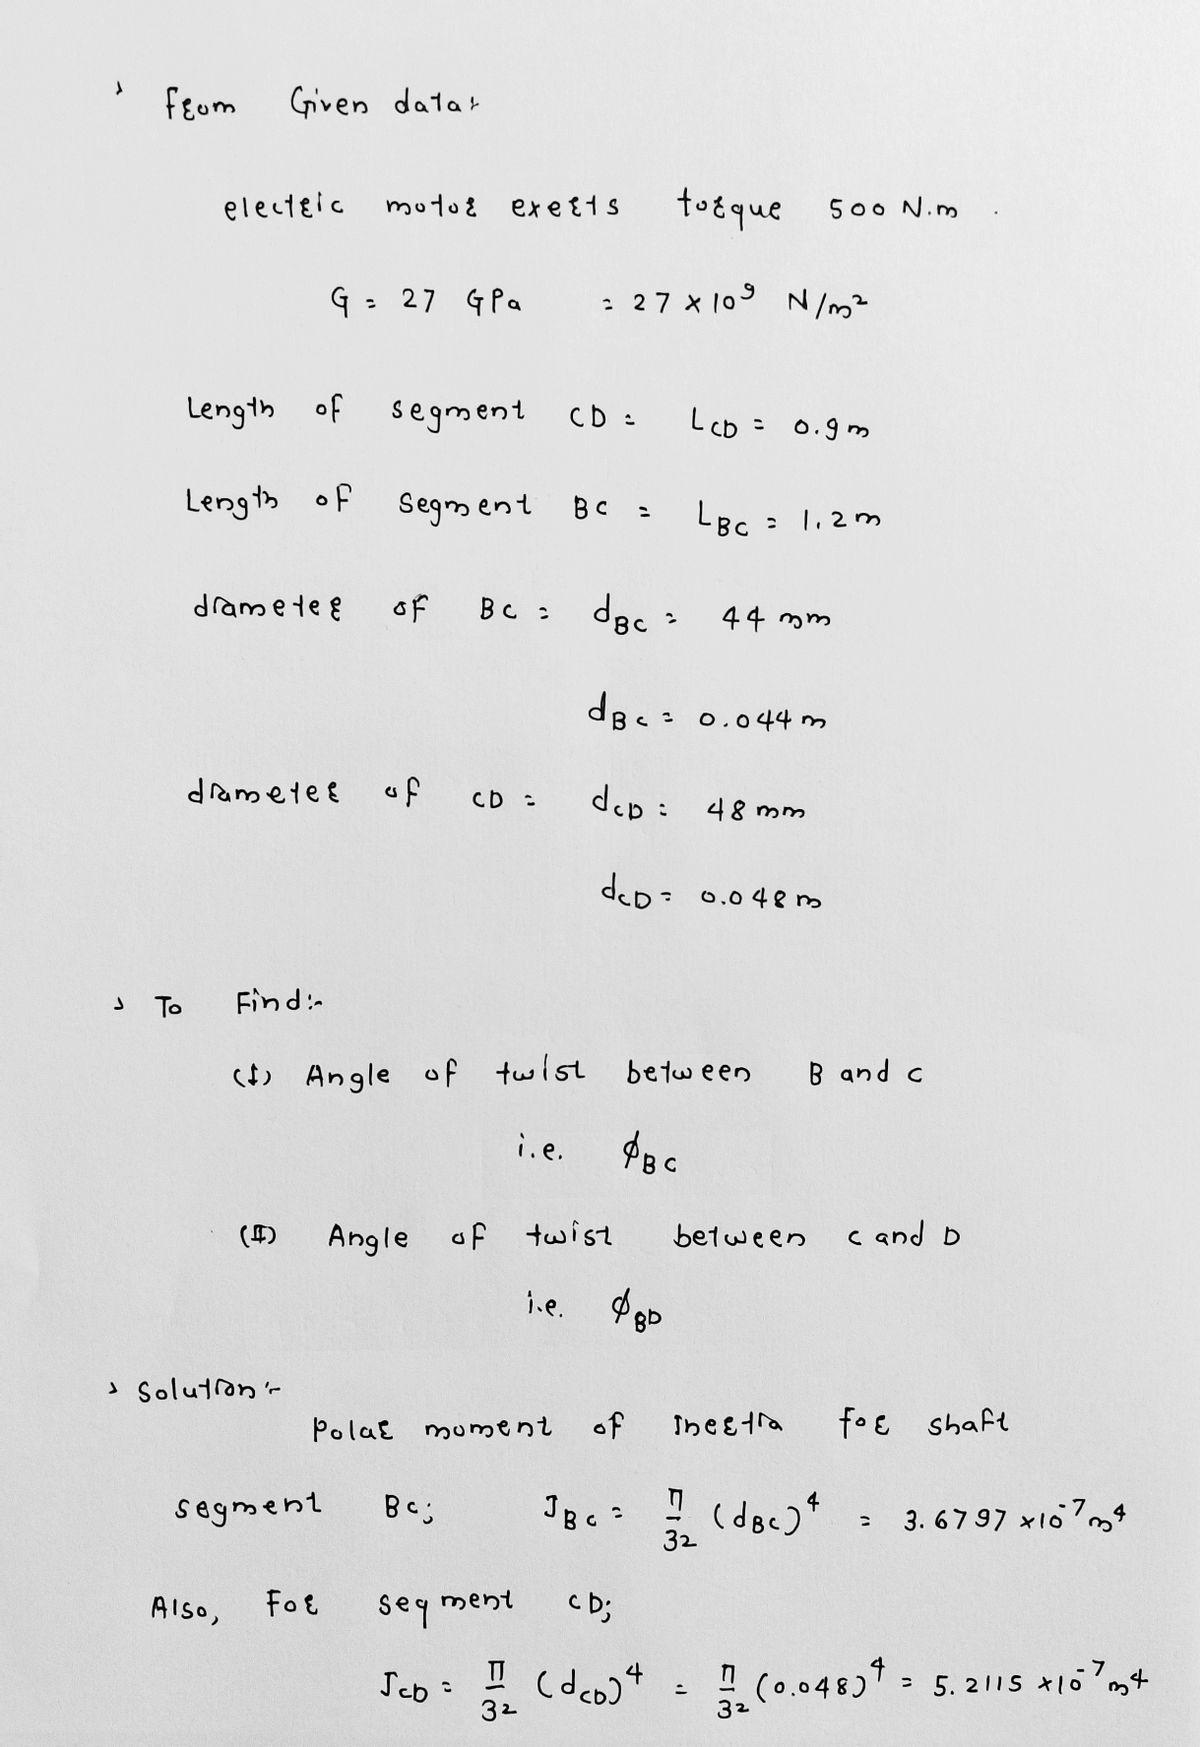 From Given data:
electric motor exerts torque 500 N.m.
G = 27 GPa = 27 × 10⁹ N/m²
Length of segment CD = L_CD = 0.9 m
Length of segment BC = L_BC = 1.2 m
diameter of BC = d_BC = 44 mm
d_BC = 0.044 m
diameter of CD = d_CD = 48 mm
d_CD = 0.048 m
To Find:-
(I) Angle of twist between B and C
i.e. ϕ_BC
(II) Angle of twist between C and D
i.e. ϕ_BD
Solution:-
Polar moment of Inertia for shaft
segment BC; J_BC = π/32 (d_BC)⁴ = 3.6797 × 10⁻⁷ m⁴
Also, For segment CD;
J_CD = π/32 (d_CD)⁴ = π/32 (0.048)⁴ = 5.2115 × 10⁻⁷ m⁴